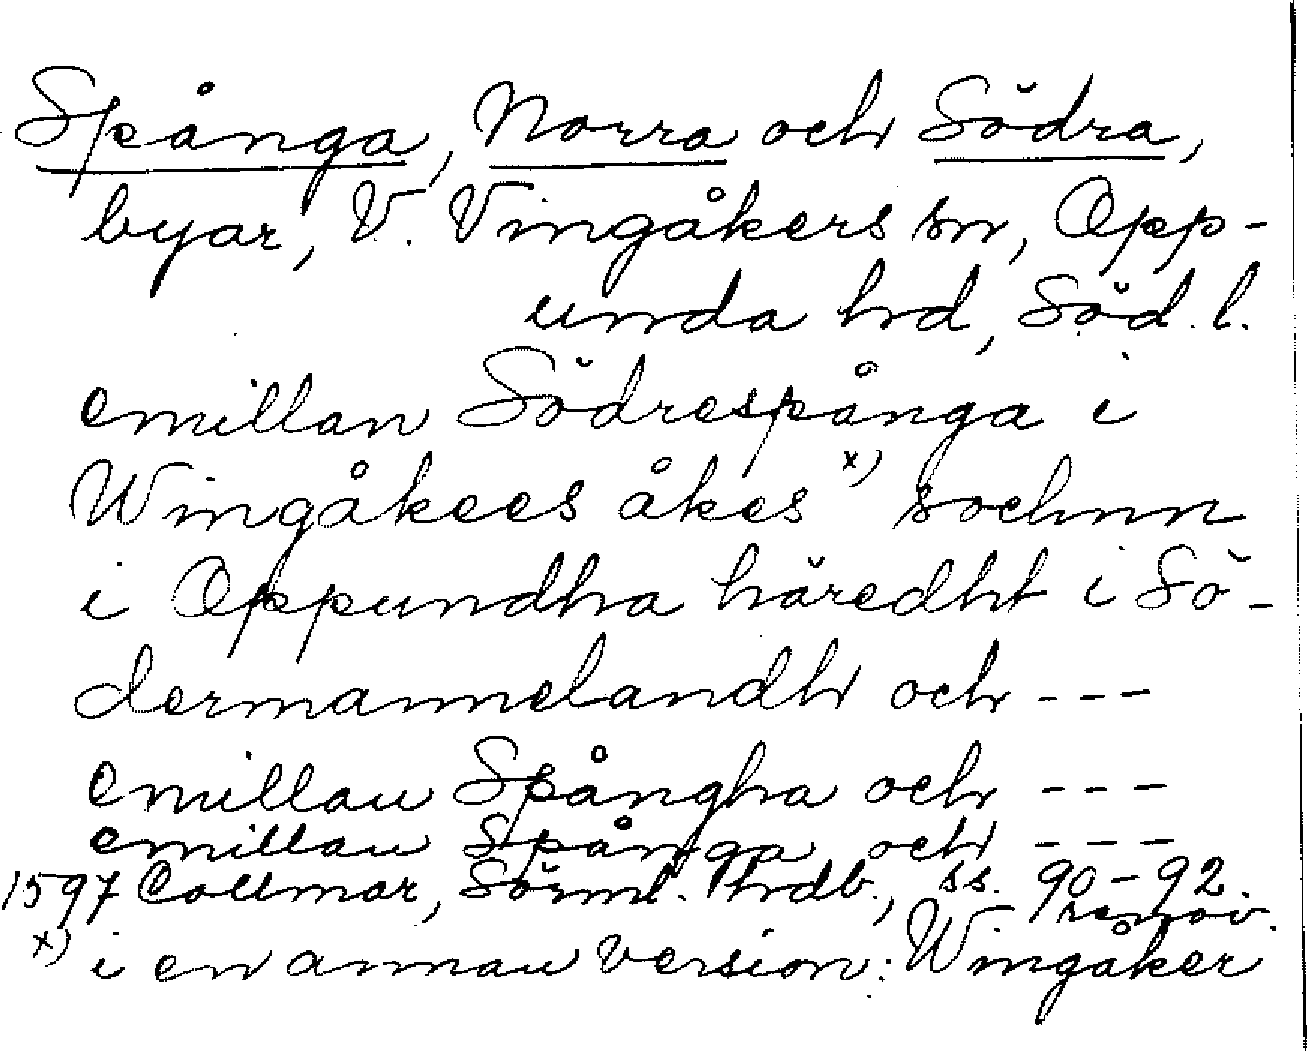 Spånga, Norra och Södra,
byar, V. Vingåkers sn, Opp-
unda hd, Söd. l.
emillan Södrespånga i
Wingåkees åkes x) sochnn
i Oppundha häredht i Sö-
dermannelandh och ---
emillan Spångha och ---
emillan Spånga och ---
1597 Collmar, Sörml. hrdb., ss. 90-92.
x) i en annan version: Wingåker